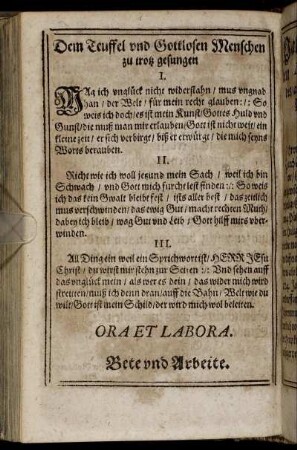 Dem Teuffel vnd Gottlosen Menschen
zu trotz gesungen
I.
MAg ich vnglück nicht widerstahn / mus vngnad
han / der Welt / für mein recht glauben :/: So
weis ich doch / es ist mein Kunst / Gottes Huld vnd
Gunst / die muß man mir erlauben / Gott ist nicht weit / ein
kleine zeit / er sich verbirgt / biß er erwürgt / die mich seyns
Worts berauben.
II.
Richt wie ich woll jetzund mein Sach / weil ich bin
Schwach / vnd Gott mich furcht lest finden :/: So weis
ich das kein Gwalt bleibt fest / ists aller best / das zeitlich
mus verschwinden / das ewig Gut / macht rechten Muth /
dabey ich bleib / wag Gut vnd Leib / Gott hilff mirs vber-
winden.
III.
All Ding ein weil ein Sprichwort ist / HERR JEsu
Christ / du wirst mir stehn zur Seiten :/: Vnd sehen auff
das vnglück mein / als wer es dein / das wider mich wird
streitten / muß ich denn dran / auff die Bahn / Welt wie du
wilt / Gott ist mein Schild / der wird mich wol beleiten.
ORA ET LABORA.
Bete vnd Arbeite.